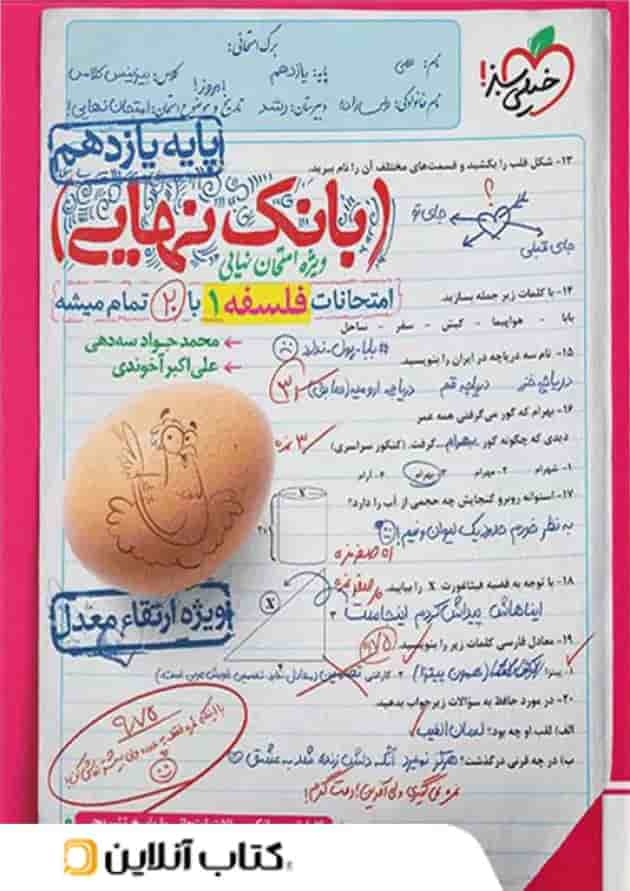 خیلی سبز!
برگ امتحانی:
نام:
پایه: یازدهم
کلاس: بیزینس کلاس
نام خانوادگی:
دبیرستان: رشد
تاریخ و موضوع امتحان: امتحان نهایی! امروز!
پایه یازدهم
(بانک نهایی)
ویژه امتحان نهایی
امتحانات فلسفه ۱ با ۲۰ تمام میشه
محمدجواد سه‌دهی
علی‌اکبر آخوندی
ویژه ارتقاء معدل
۱۳- شکل قلب را بکشید و قسمت‌های مختلف آن را نام ببرید.
؟
جای تو
جای قبلی
۱۴- با کلمات زیر جمله بسازید.
بابا - هواپیما - کیش - سفر - ساحل
#بابا-پول-نداره
۱۵- نام سه دریاچه در ایران را بنویسید.
دریاچه خزر دریاچه قم دریاچه ارومیه
۱۶- بهرام که گور می‌گرفتی همه عمر
دیدی که چگونه گور بهرام گرفت. (کنکور سراسری)
۳ نمره
۱- شهرام ۲- مهرام ۳- بهرام ۴- آرام
۱۷- استوانه روبرو گنجایش چه حجمی از آب را دارد؟
به نظر خودم حدود یک لیوان و نیم!
x
۱۸- با توجه به قضیه فیثاغورث X را بیابید.
ایناهاش پیداش کردم اینجاست
X
۱۹- معادل فارسی کلمات زیر را بنویسید.
۹/۷۵
۲۰- در مورد حافظ به سؤالات زیر جواب بدهید.
الف) لقب او چه بود؟ لسان الغیب
ب) در چه قرنی درگذشت؟ هرگز نمیرد آنکه دلش زنده شد به عشق
۹/۷۵
کتاب آنلاین